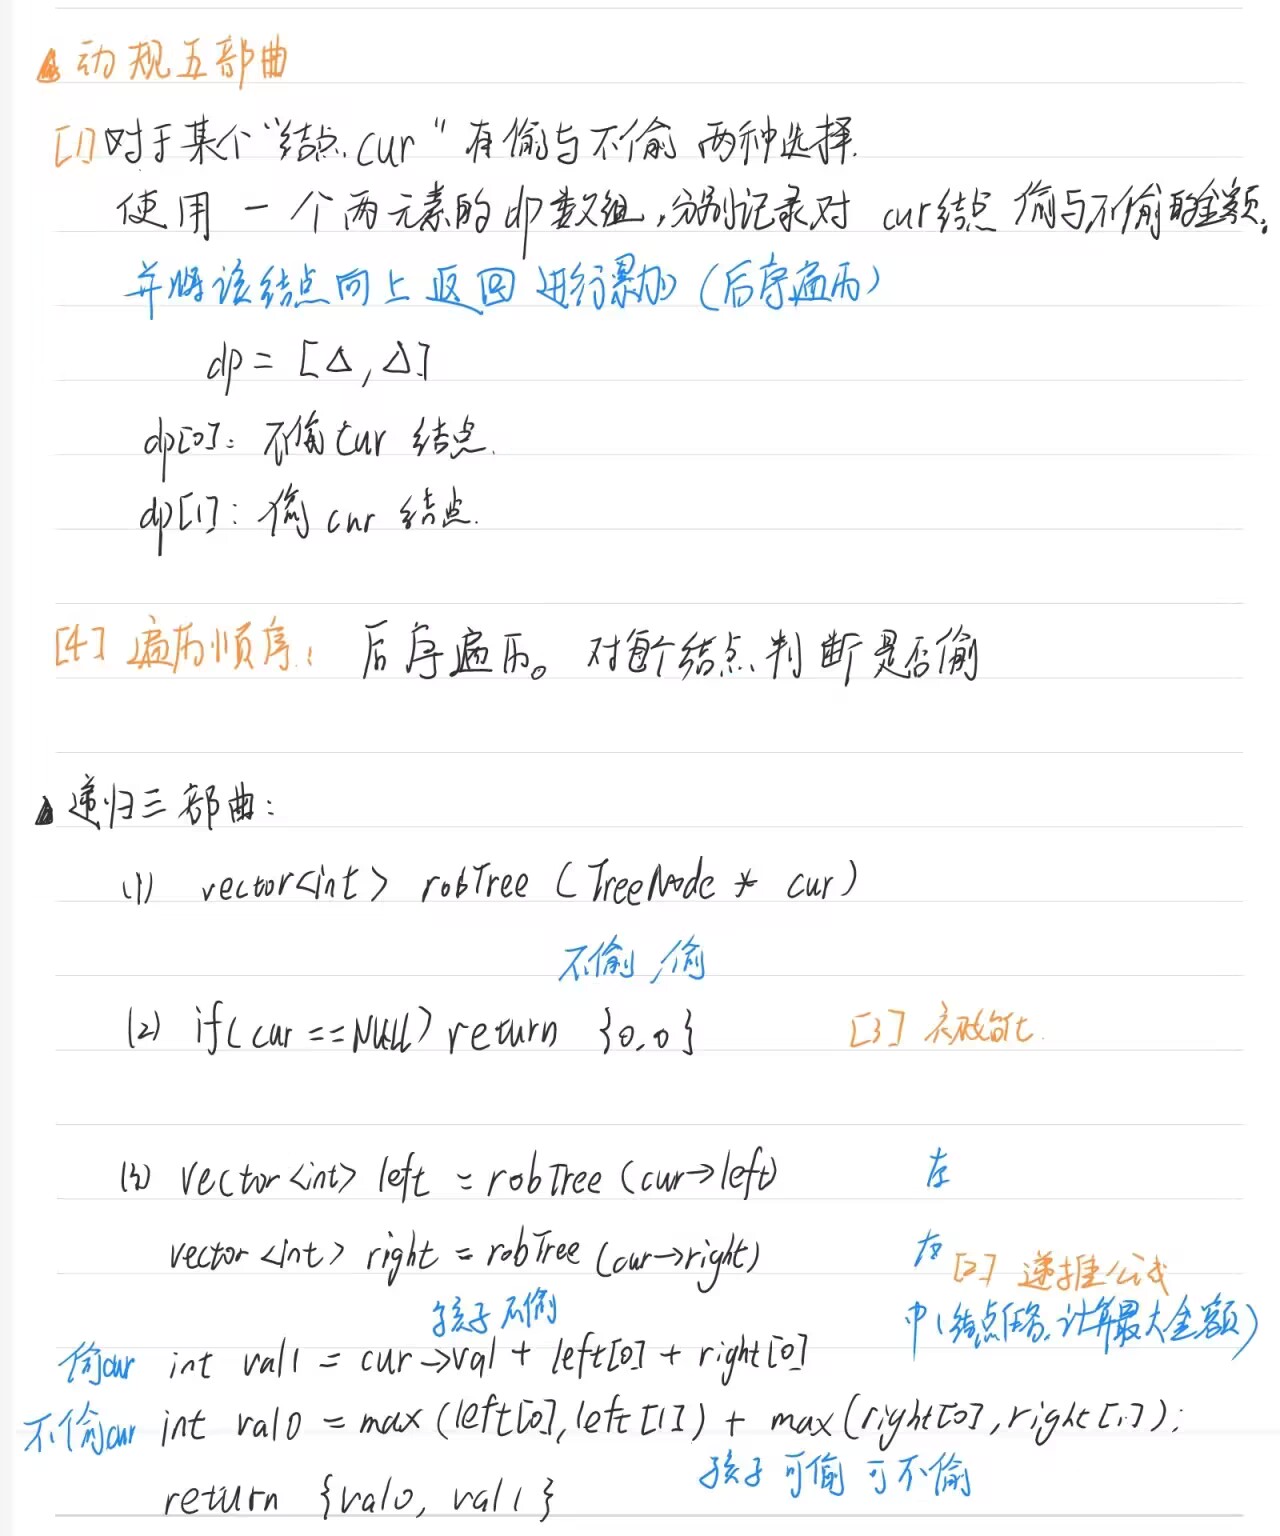 动规五部曲
[1] 对于某个“结点cur”有偷与不偷 两种选择.
使用 一个两元素的dp数组,分别记录对 cur结点 偷与不偷的金额。
并将该结点向上返回 进行累加 (后序遍历)
dp = [△, △]
dp[0]: 不偷cur 结点.
dp[1]: 偷 cur 结点.
[4] 遍历顺序: 后序遍历。 对每个结点判断是否偷
递归三部曲:
(1) vector<int> robTree (TreeNode * cur)
不偷,偷
(2) if(cur == NULL) return {0,0} [3] 初始化.
(3) vector<int> left = robTree (cur→left) 左
vector<int> right = robTree (cur→right) 右
[2] 递推公式
孩子不偷 中(结点任务,计算最大金额)
偷cur int val1 = cur→val + left[0] + right[0]
不偷cur int val0 = max (left[0], left[1]) + max(right[0], right[1]);
孩子 可偷 可不偷
return {val0, val1}